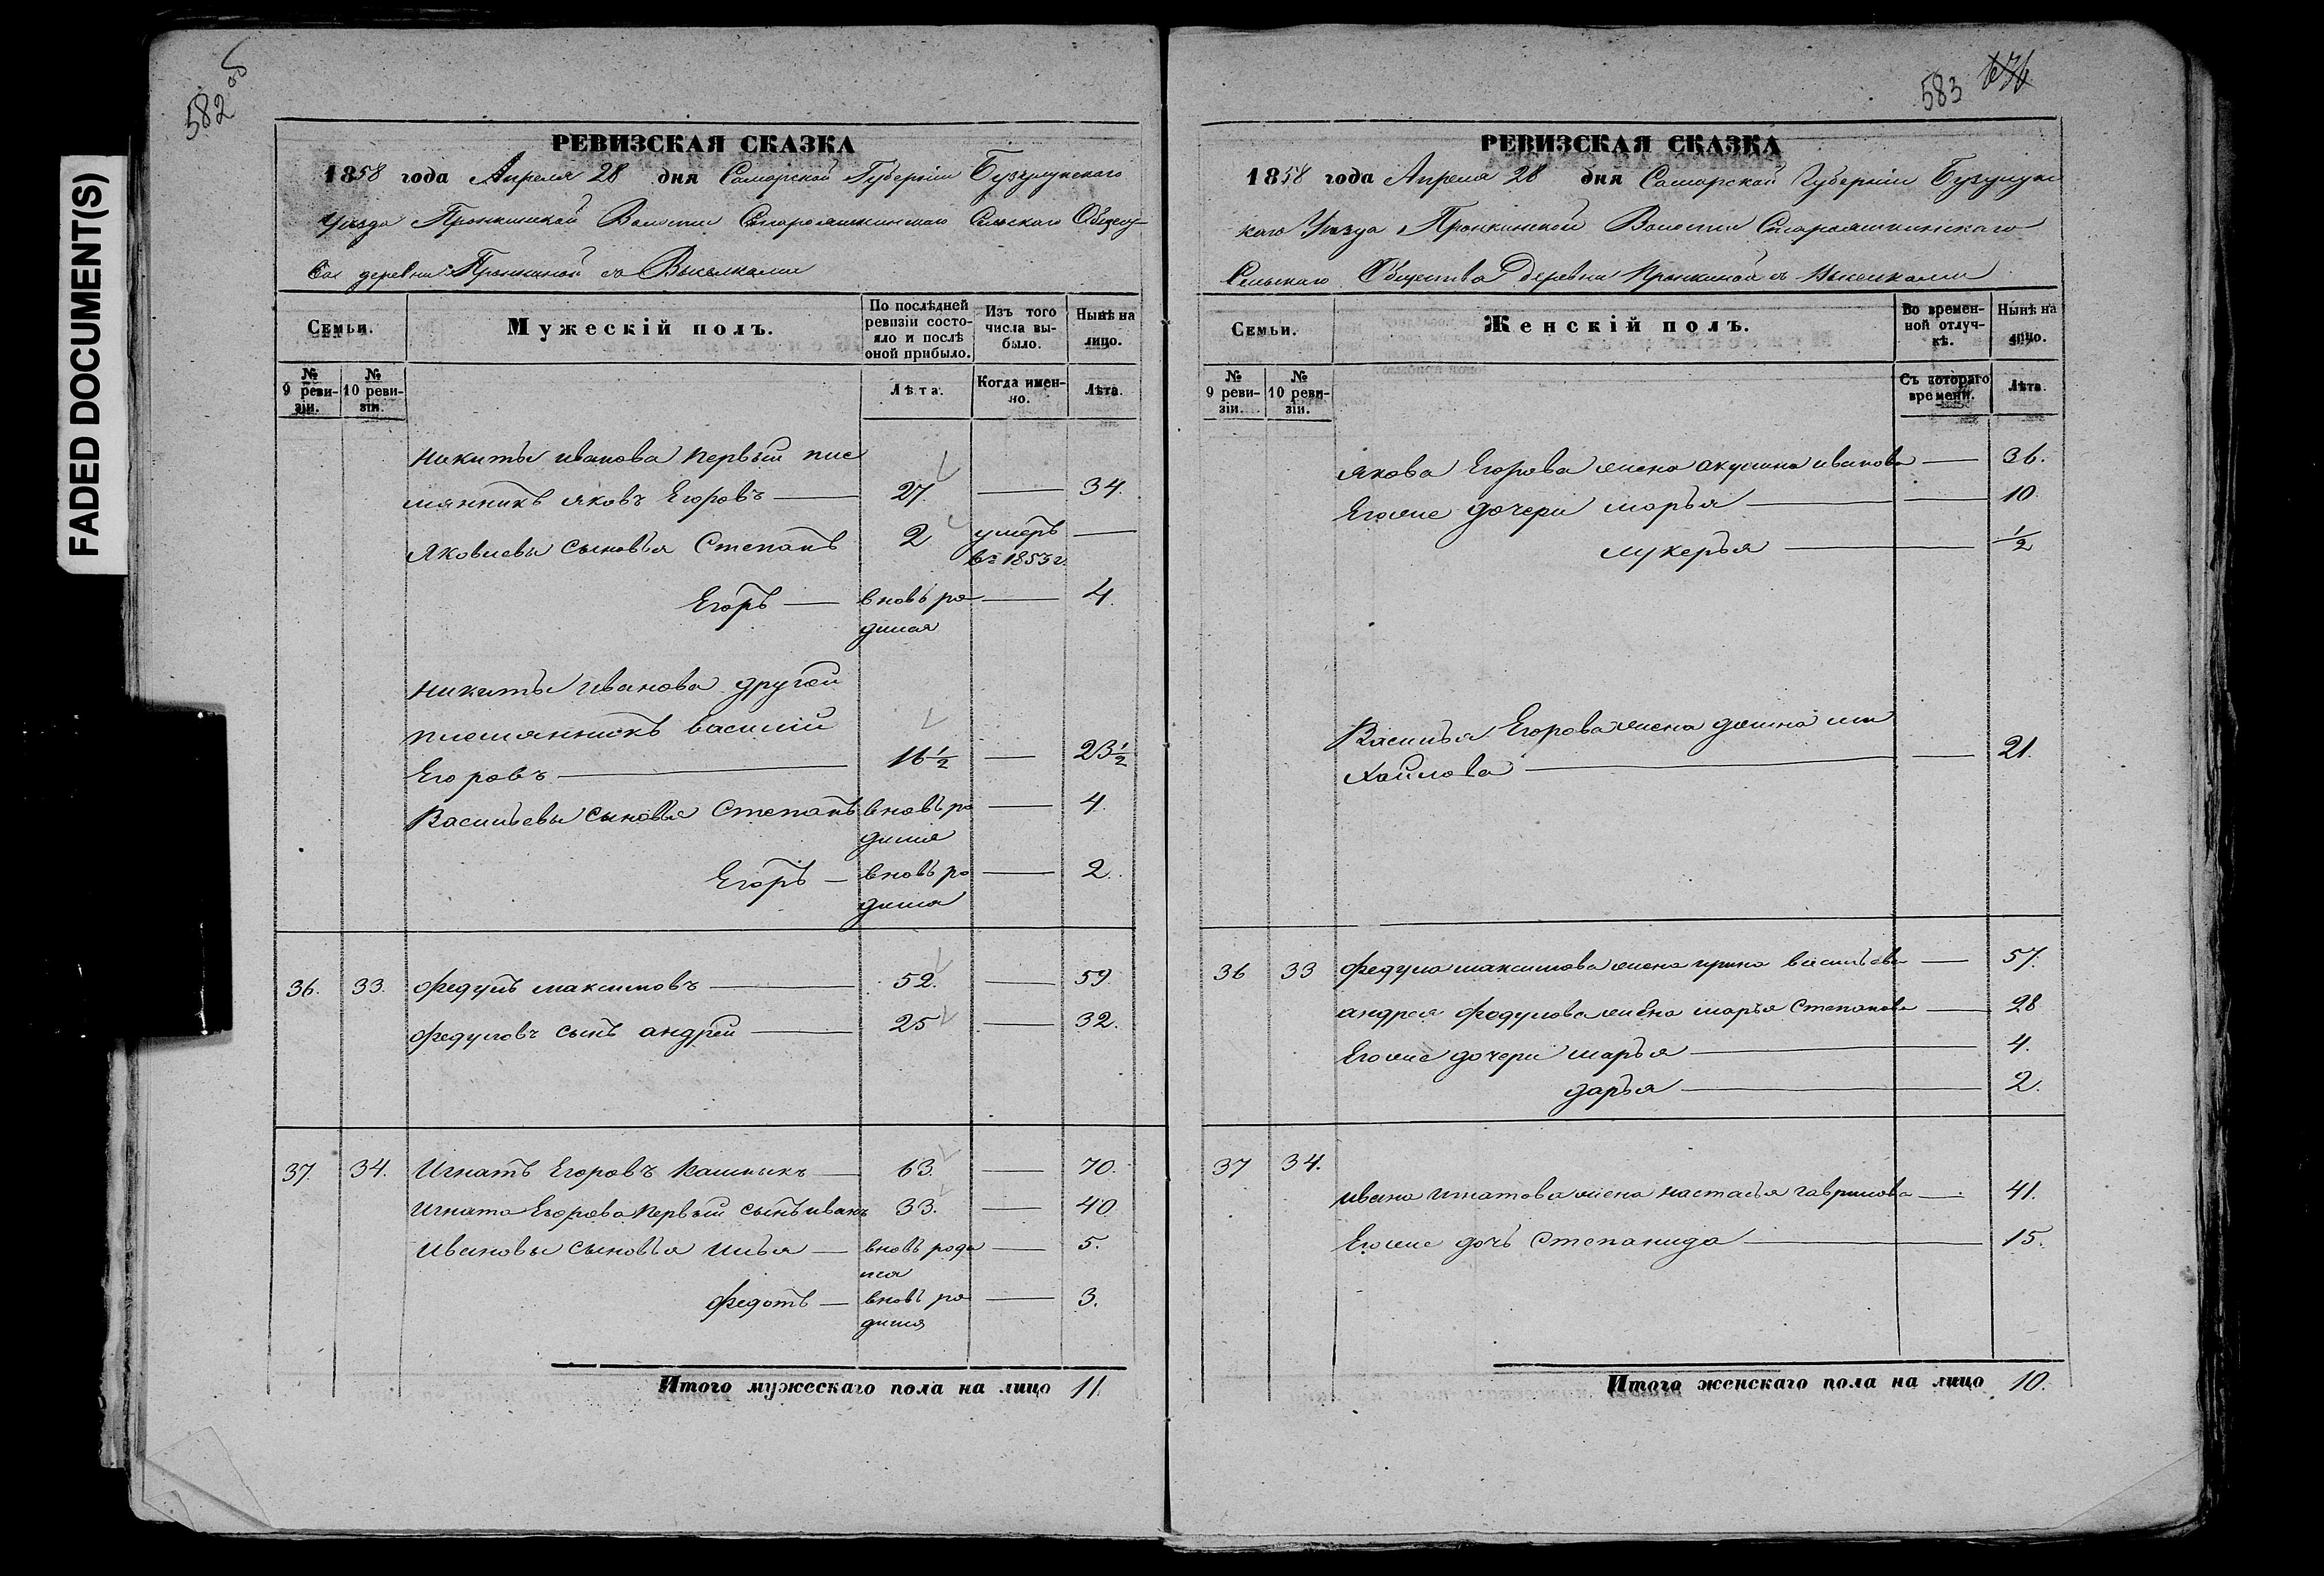 FADED DOCUMENT(S)
582 об
РЕВИЗСКАЯ СКАЗКА
1858 года Апреля 28 дня Самарской Губернии Бузулукскаго
Уезда Пронкинской Волости Старояшкинскаго Сельскаго Общест-
ва деревни Пронкиной съ Выселками
Семьи.
Мужескій полъ.
По послѣдней ревизіи состо-
яло и послѣ оной прибыло.
Изъ того числа вы-
было.
Нынѣ на лицо.
№ 9 реви-
зіи.
№ 10 реви-
зіи.
Лѣта.
Когда имен-
но.
Лѣта.
Никиты Иванова первый пле
мянникъ Яковъ Егоровъ — 27. — 34.
Яковлевы сыновья Степанъ 2 умеръ —
въ 1853 г.
Егоръ — вновь ро — 4.
дился
Никиты Иванова другой
племянникъ Василий
Егоровъ — 16 1/2 — 23 1/2
Васильевы сыновья Степанъ вновь ро — 4.
дился
Егоръ — вновь ро — 2.
дился
36. 33. Федулъ Максимовъ — 52. — 59.
Федуловъ сынъ Андрей — 25 — 32.
37. 34. Игнатъ Егоровъ — 63. — 70.
Игната Егорова первый сынъ Иванъ 33. — 40
Ивановы сыновья Илья — вновь роди — 5.
лся
Федотъ — вновь ро — 3.
дился
Итого мужескаго пола на лицо 11.
583
РЕВИЗСКАЯ СКАЗКА
1858 года Апреля 28 дня Самарской Губернии Бузулукс
каго Уезда Пронкинской Волости Старояшкинскаго
Сельскаго Общества Деревни Пронкиной съ Выселками
Семьи.
Женскій полъ.
Во времен-
ной отлуч-
кѣ.
Нынѣ на лицо.
№ 9 реви-
зіи.
№ 10 реви-
зіи.
Съ котораго времени.
Лѣта.
Якова Егорова жена Акулина Иванова — 36.
Его же дочери Марья — 10.
Лукерья — 1/2
Василья Егорова жена Домна Ми
хайлова — 21.
36 33 Федула Максимова жена Ирина Васильева — 57.
Андрея Федулова жена Марья Степанова — 28
Его же дочери Марья — 4.
Дарья — 2.
37 34.
Ивана Игнатова жена Настасья Гаврилова — 41.
Его же дочь Степанида — 15.
Итого женскаго пола на лицо 10.